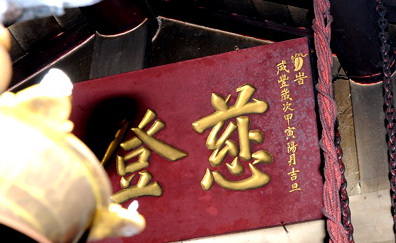 旹
咸豐歲次甲寅陽月吉旦
慈登